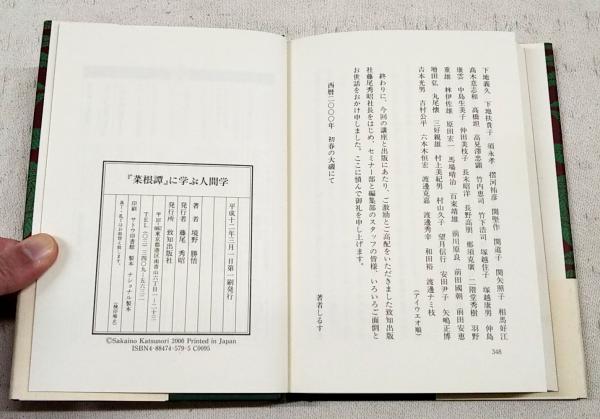 下地義久　下地扶貴子　須永孝　摺河祐彦　関堅作　関道子　関矢照子　相馬好江
高木意志和　高橋坦　高見澤忠顕　竹内恵司　竹下浩司　塚越住子　塚越康男　仲島
康雲　中島生美子　仲田美枝子　長末昭淳　長野高朋　那須克廣　二階堂秀樹　羽野
重雄　林伊佐雄　原田宏一　馬場晴治　百東靖雄　前川原良　前田國朝　前田安恵
増田弘　丸尾懐　三好親雄　村上美紀男　村山久子　望月信行　安田尹子　矢嶋正博
吉本光男　吉村公平　六本木恒宏　渡邊克嘉　渡邊秀幸　和田裕　渡邊ナミ枝
（アイウエオ順）
終わりに、今回の講座と出版にあたり、ご激励とご高配をいただきました致知出版
社藤尾秀昭社長をはじめ、セミナー部と編集部のスタッフの皆様、いろいろご面倒と
お世話をおかけ申しました。ここに慎んで御礼を申し上げます。
西暦二〇〇〇年　初春の大磯にて
著者しるす
348
『菜根譚』に学ぶ人間学
平成十二年三月一日第一刷発行
著者　境野勝悟
発行者　藤尾秀昭
発行所　致知出版社
東京都港区南青山六丁目一ー二三
TEL（〇三）三四〇九ー五六三二
印刷　サトウ印書館　製本　ナショナル製本
落丁・乱丁はお取替え致します。
（検印廃止）
©Sakaino Katsunori 2000 Printed in Japan
ISBN4-88474-579-5 C0095